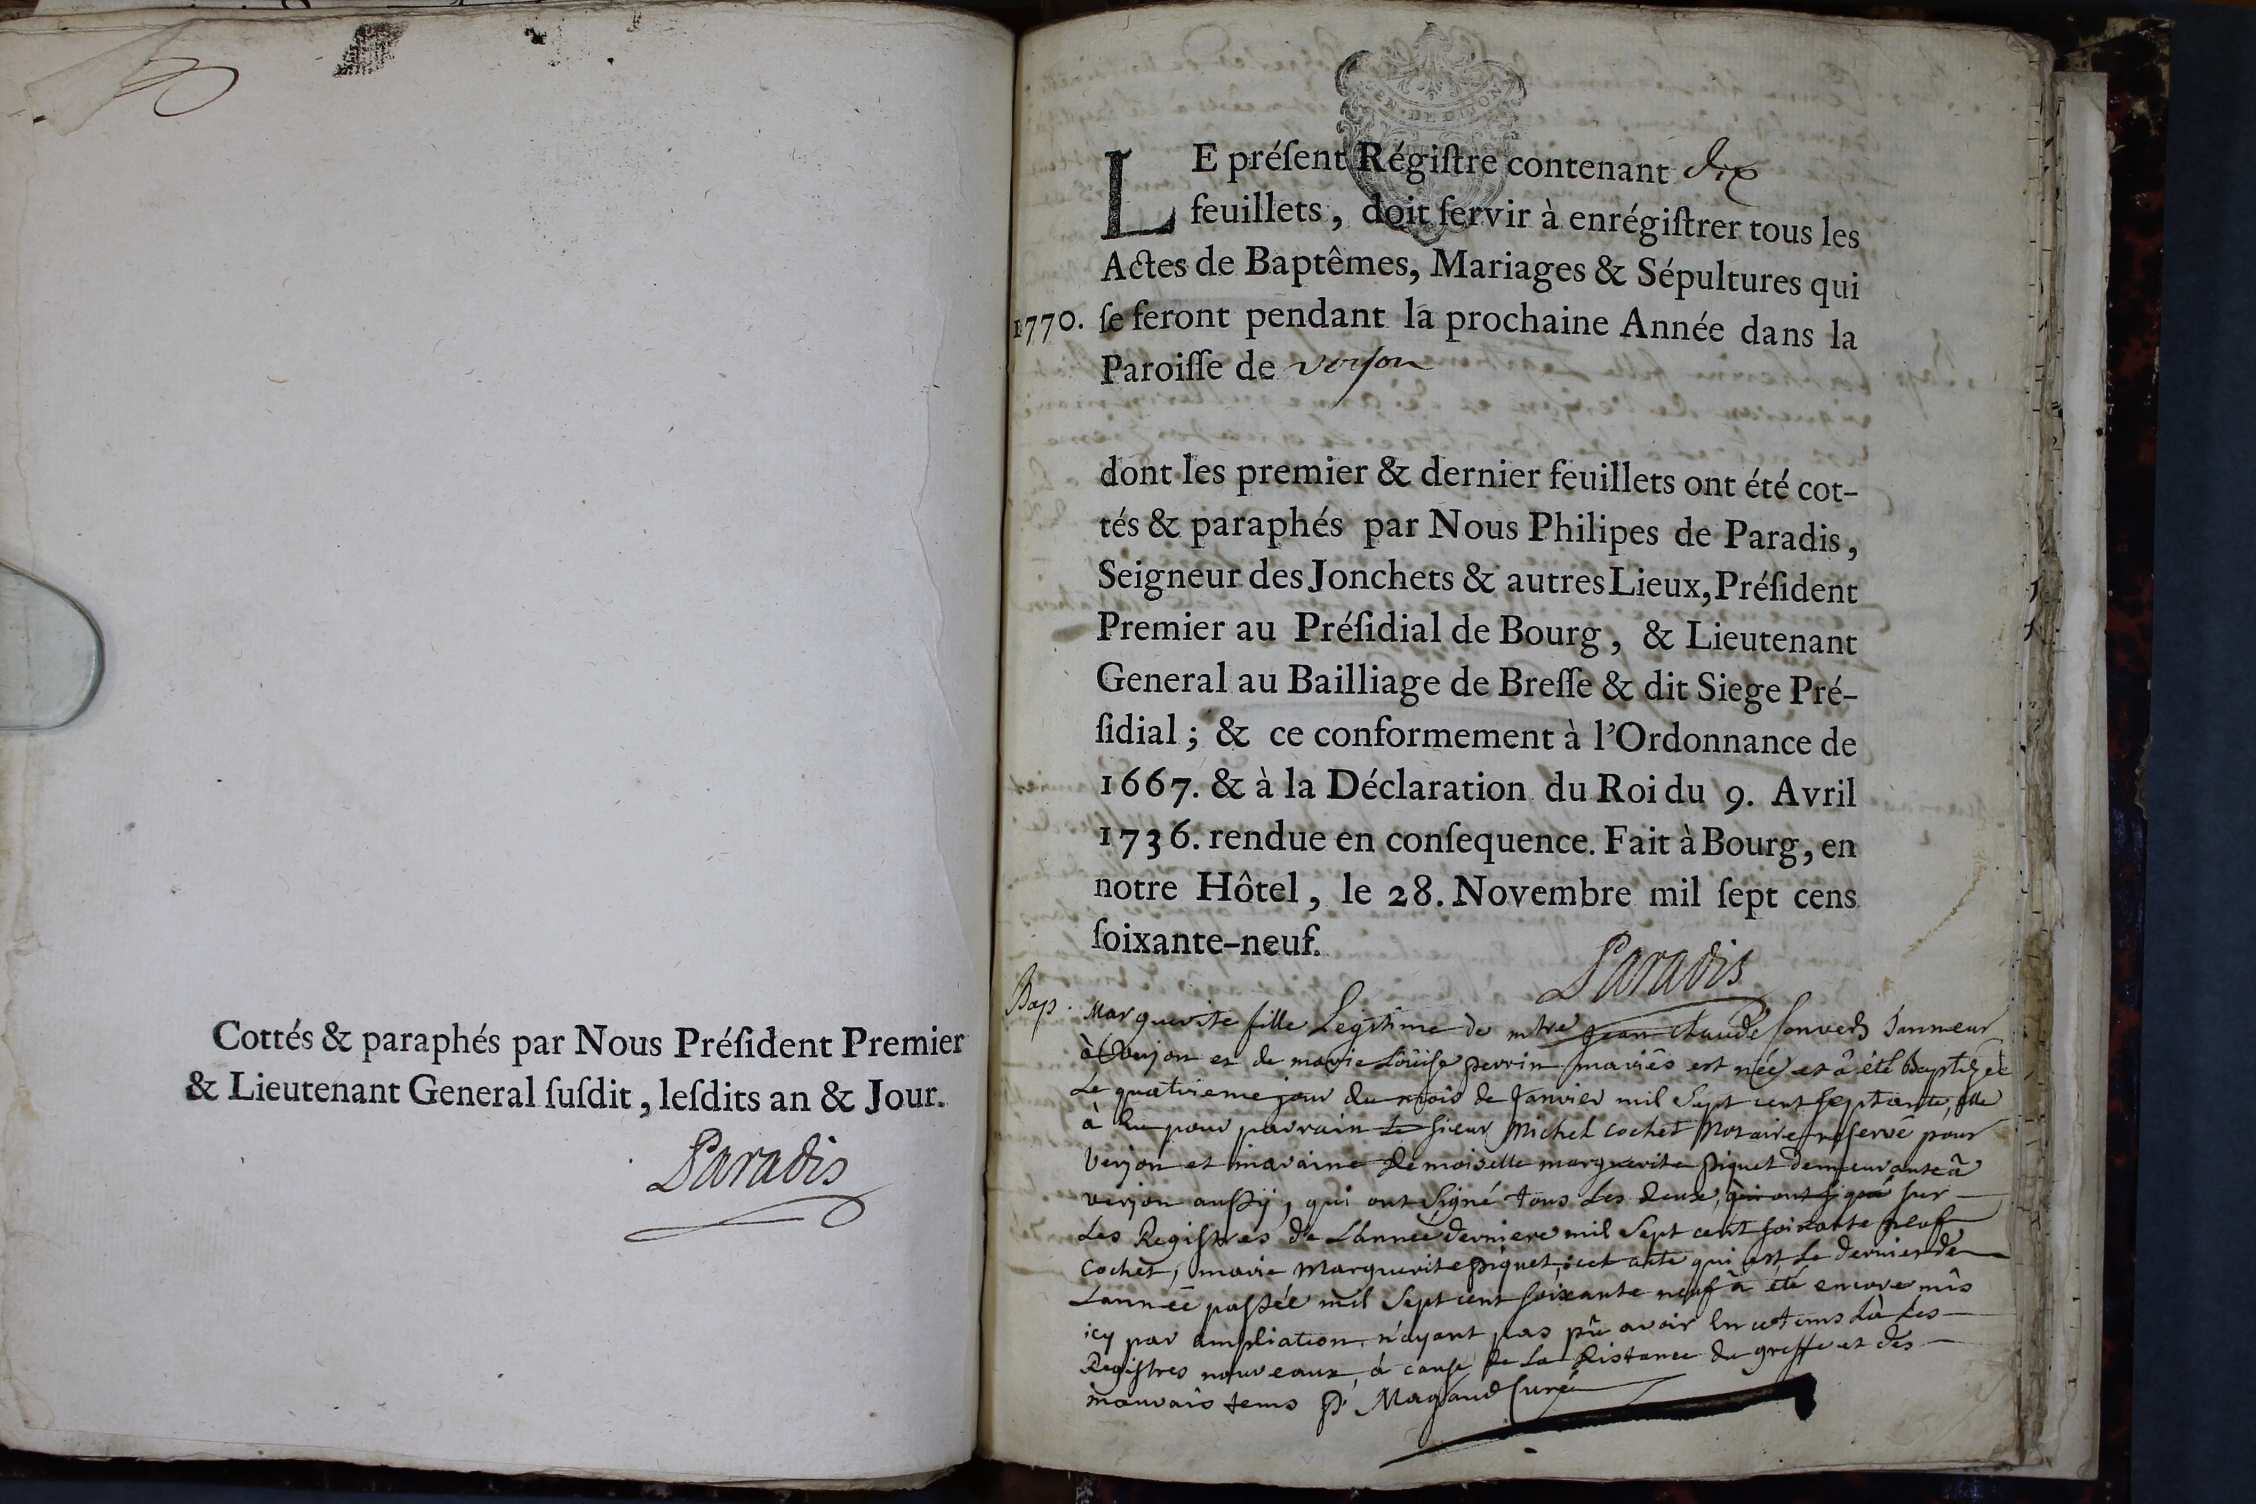 Cottés & paraphés par Nous Préſident Premier
& Lieutenant General ſuſdit, leſdits an & Jour.
Paradis
GEN. DE DIJON
LE préſent Régiſtre contenant dix
feuillets, doit ſervir à enrégiſtrer tous les
Actes de Baptêmes, Mariages & Sépultures qui
1770. ſe feront pendant la prochaine Année dans la
Paroiſſe de verjon
dont les premier & dernier feuillets ont été cot-
tés & paraphés par Nous Philipes de Paradis,
Seigneur des Jonchets & autres Lieux, Préſident
Premier au Préſidial de Bourg, & Lieutenant
General au Bailliage de Breſſe & dit Siege Pré-
ſidial; & ce conformement à l'Ordonnance de
1667. & à la Déclaration du Roi du 9. Avril
1736. rendue en conſequence. Fait à Bourg, en
notre Hôtel, le 28. Novembre mil ſept cens
ſoixante-neuf.
Paradis
Bap. Marguerite fille Legitime de mtre Jean Claude Convers
à Verjon et de marie Loüise perrin mariés est née et à été Baptizée
Le quatrieme jour du mois de Janvier mil Sept cent septante, elle
à Eu pour parrain Le sieur Michel Cochet Notaire reservé pour
Verjon et maraine Demoiselle marguerite piquet demeurante à
verjon aussÿ, qui ont signé tous Les deux, qui ont signé sur
Les Registres de L'année derniere mil Sept cent soixante neuf
Cochet, marie Marguerite piquet, cet acte qui est Le dernier de
L'année passée mil Sept cent soixante neuf à été encore mis
icy par ampliation, n'ayant pas pû avoir En ce tems Là Les
Registres nouveaux, à cause de La Distance du greffe et des
mauvais tems P. Magaud Curé